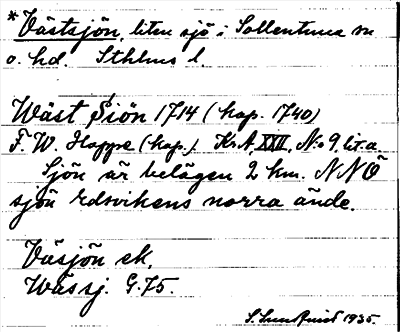 *Västsjön, liten sjö i Sollentuna sn
o. hd. Sthlms l.
Wäst Siön 1714 (kop. 1740)
F. W. Hoppe (kop.). KrA, XXII, No 9 lit. a
Sjön är belägen 2 km. NNÖ
sjön Edsvikens norra ände.
Väsjön ek.
Wässj. G. 75.
S. Sundquist 1935.